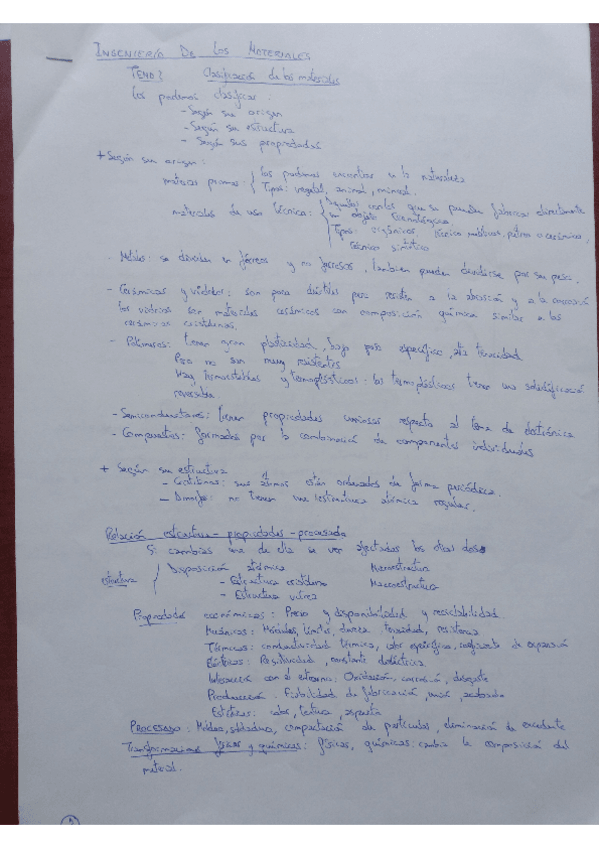 INGENIERÍA DE LOS MATERIALES
TEMA 2 Clasificación de los materiales
Los podemos clasificar:
- Según su origen
- Según su estructura
- Según sus propiedades
+ Según su origen:
materias primas: los podemos encontrar en la naturaleza
Tipos: vegetal, animal, mineral.
materiales de uso técnico: Aquellos con los que se pueden fabricar directamente
un objeto tecnológico
Tipos: orgánicos, técnico metálicos, pétreo o cerámico,
técnico sintético
- Metales: se dividen en férreos y no ferrosos, también pueden dividirse por su peso.
- Cerámicas y vidrios: son poco dúctiles pero resisten a la abrasión y a la corrosión
los vidrios son materiales cerámicos con composición química similar a los
cerámicos cristalinos.
- Polímeros: tienen gran plasticidad, bajo peso específico, alta tenacidad
Pero no son muy resistentes
Hay termoestables y termoplásticos: los termoplásticos tienen una solidificación
reversible.
- Semiconductores: tienen propiedades curiosas respecto al tema de electrónica
- Compuestos: formados por la combinación de componentes individuales
+ Según su estructura
- Cristalinos: sus átomos están ordenados de forma periódica.
- Amorfos: no tienen una estructura atómica regular.
Relación estructura - propiedades - procesado
Si cambias una de ella se ven afectadas las otras dos
estructura Disposición atómica Microestructura
- Estructura cristalina Macroestructura
- Estructura vítrea
Propiedades económicas: Precio y disponibilidad y reciclabilidad
Mecánicas: Módulos, límites, dureza, tenacidad, resistencia
Térmicas: conductividad térmica, calor específico, coeficiente de expansión
Eléctricas: Resistividad, constante dieléctrica
Interacción con el entorno: Oxidación, corrosión, desgaste
Producción: Facilidad de fabricación, unión, acabado
Estéticas: color, textura, aspecto
PROCESADO: Moldeo, soldadura, compactación de partículas, eliminación de excedente
Transformaciones físicas y químicas: físicas, químicas: cambia la composición del
material.